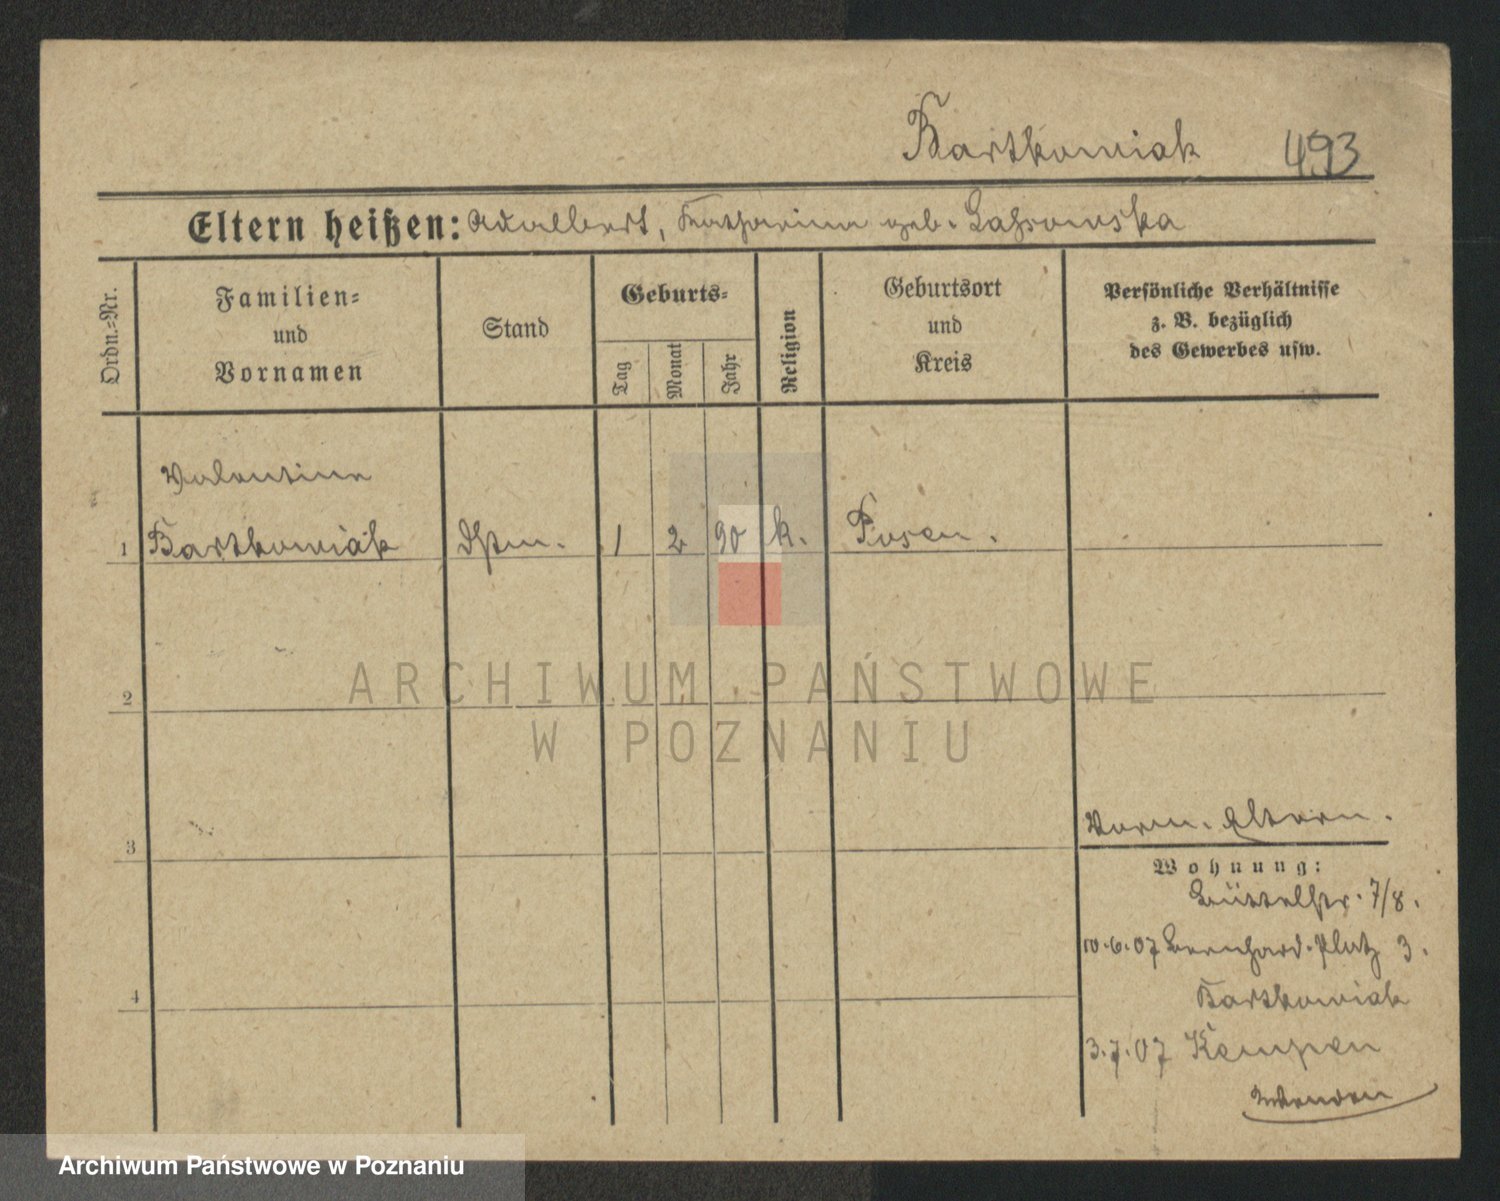 Bartkowiak 493
Eltern heißen: Adalbert, Katharina geb.
Ordn.-Nr.
Familien-
und
Vornamen
Stand
Geburts-
Tag
Monat
Jahr
Religion
Geburtsort
und
Kreis
Persönliche Verhältnisse
z. B. bezüglich
des Gewerbes usw.
Valentine
1 Bartkowiak 1 2 90 k. Posen.
2
ARCHIWUM PAŃSTWOWE
W POZNANIU
3
Vorm. Eltern.
Wohnung:
Büttelstr. 7/8.
10.6.07 Bernhard. Platz 3.
Bartkowiak
4
3.7.07 Kempen
wenden
Archiwum Państwowe w Poznaniu